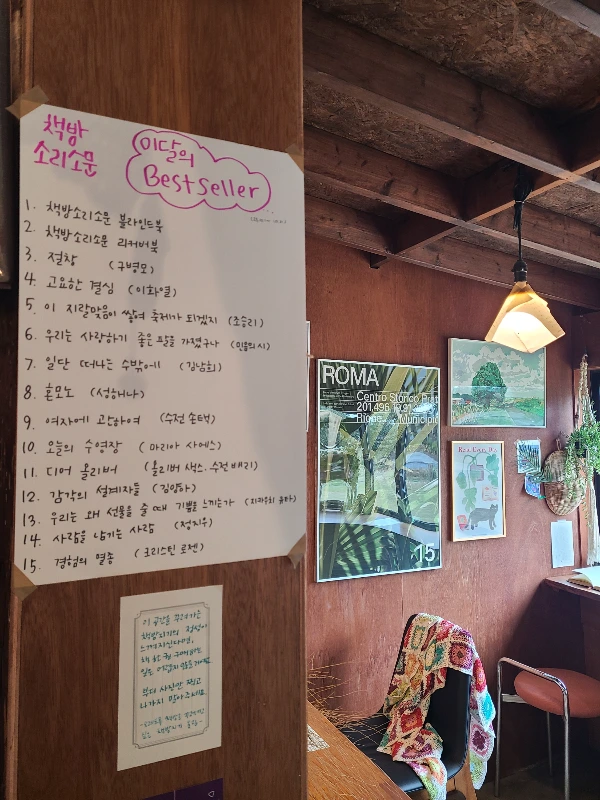 책방
소리소문
이달의
Bestseller
1. 책방소리소문 블라인드북
2. 책방소리소문 리커버북
3. 절창 (구병모)
4. 고요한 결심 (이화열)
5. 이 지랄맞음이 쌓여 축제가 되겠지 (조승리)
6. 우리는 사랑하기 좋은 팔을 가졌구나
7. 일단 떠나는 수밖에 (김남희)
8. 혼모노 (성해나)
9. 여자에 관하여 (수전 손택)
10. 오늘의 수영장 (마리아 사에스)
11. 디어 올리버 (올리버 색스, 수전 배리)
12. 감각의 설계자들
13. 우리는 왜 선물을 줄 때 기쁨을 느끼는가
14. 사람을 남기는 사람 (정지우)
15. 경험의 멸종 (크리스틴 로젠)
이 공간을 꾸려가는
책방지기의 정성이
느껴지신다면,
책 한 권 구매하는
부디 사진만 찍고
나가지 말아주세요.
ROMA
Centro Storico
15